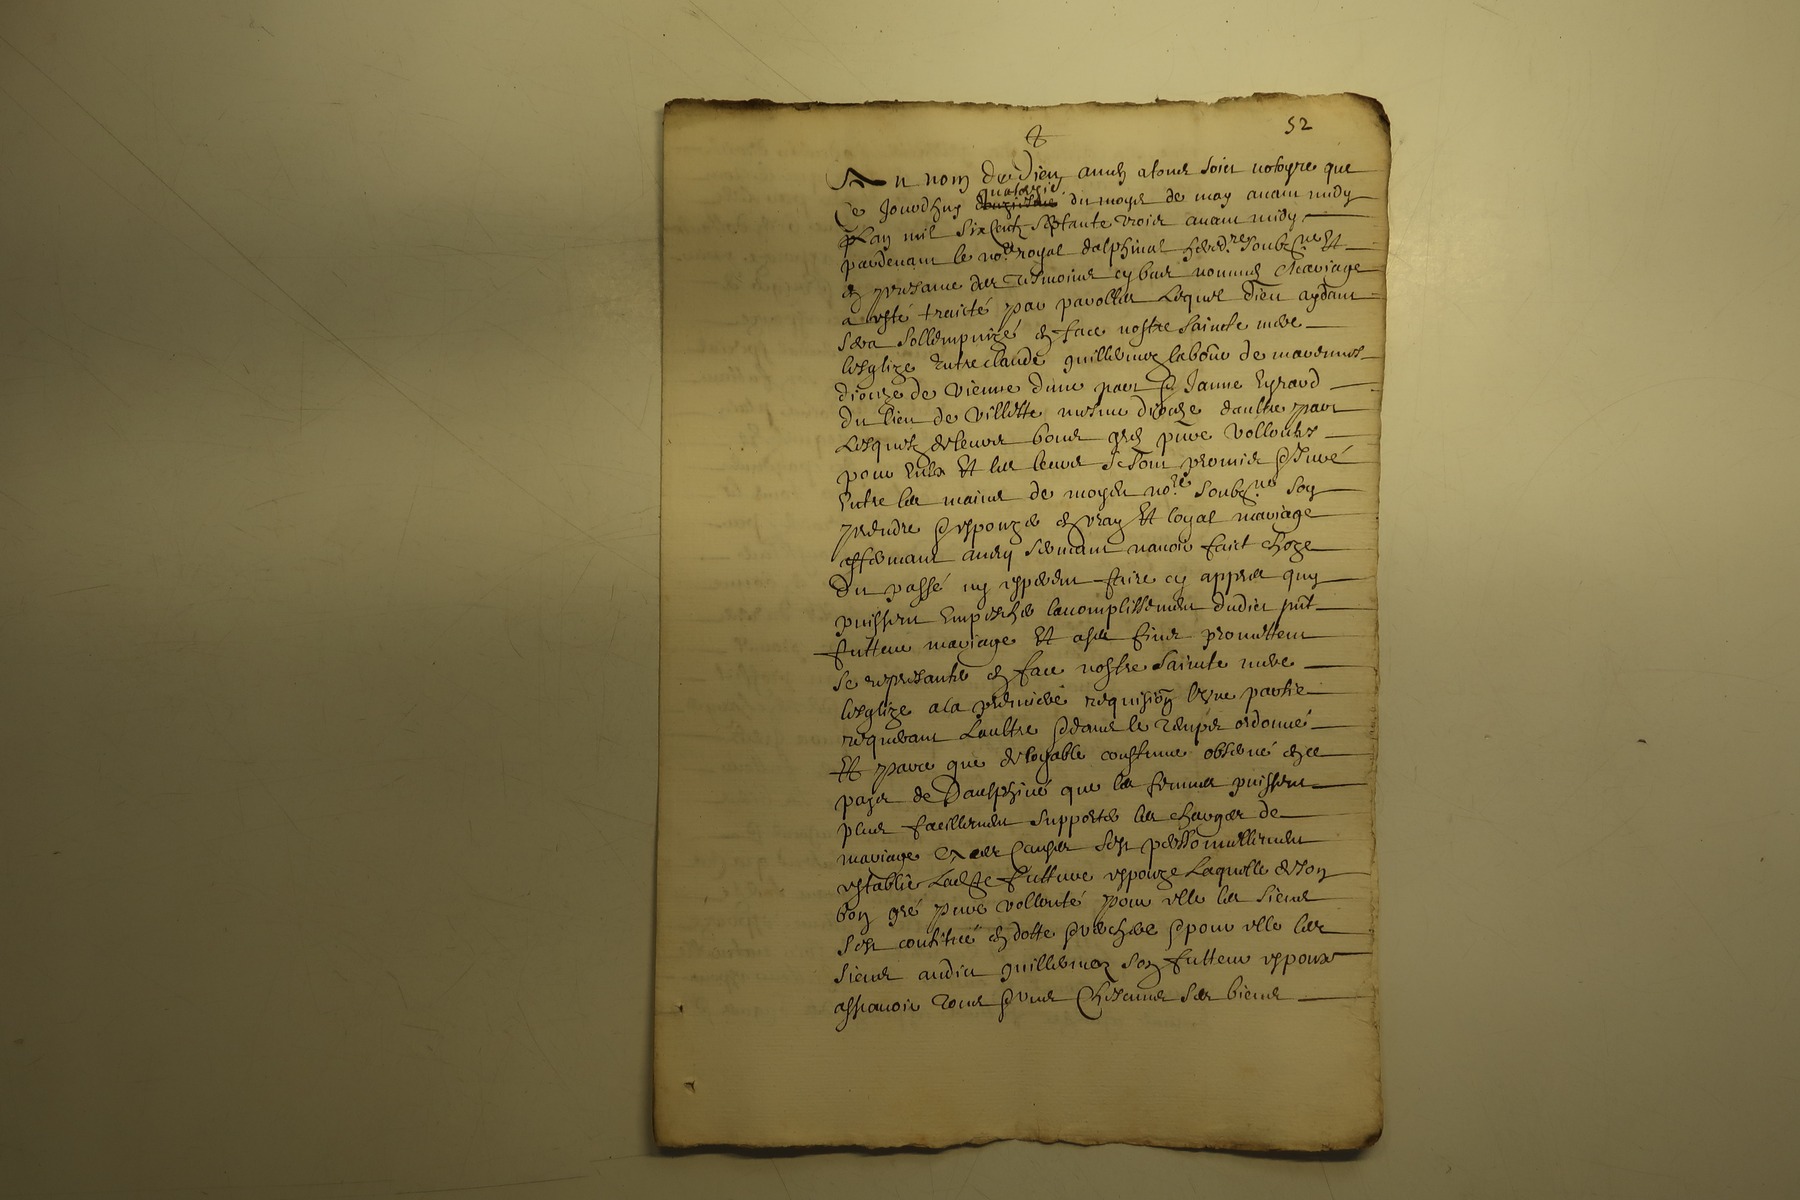 52
Au nom de Dieu amen a tous soict notoyre que
Ce Jourdhuy quatorzie du moys de may avant midy
Lan mil six centz septante trois avant midy
pardevant le no.re royal dalphinal hered.re soubz.ne Et
en presance des tesmoins cy bas nommes Mariage
a esté traicté par parolles Lequel Dieu aydant
sera sollempnizé en face nostre saincte mere
lesglize Entre claude guillermoz labour de
dioceze de Vienne dune part Et Janne Eyraud
du lieu de Villette mesme dioceze daultre part
Lesquelz de leurs bons grez pure vollontes
pour Eulx Et les leurs se sont promis Et Juré
Entre les mains de moydit no.re soubz.ne soy
prendre Et espouzer en vray Et loyal mariage
affermant aussy serment navoir faict choze
du passé ny esperent faire cy appres quy
puissent Empescher lacomplissement dudict pnt
futteur mariage Et a ses fins promettent
se representer en face nostre saincte mere
lesglize a la premiere requision lugne partie
requerant Laultre Et dans le temps ordonné
Et parce que de loyable coustume observé en ce
pays de Daulphiné que les femmes puissent
plus facillement supporter les charges de
mariage causes sest personnellement
establie Ladite futture espouze Laquelle de son
bon gré pure vollonté pour elle les siens
sest constitué en dotte Et verchere Et pour elle les
siens audict guillermoz son futteur espoux
assavoir tous Et uns chescuns ses biens